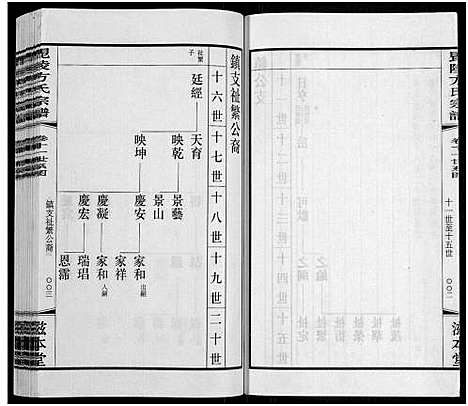 毘陵方氏宗譜
卷十一世系圖
十一世至十五世
〇〇二
滋本堂
鎮支祉繁公裔
十六世 十七世 十八世 十九世 二十世
祉繁子
廷經 天育 映乾 景藝
景山
映坤 慶安 家和 出嗣
家祥
慶凝 家和 入嗣
慶宏 瑞琩
恩霈
毘陵方氏宗譜
卷十一世系圖
鎮支祉繁公裔
〇〇三
滋本堂